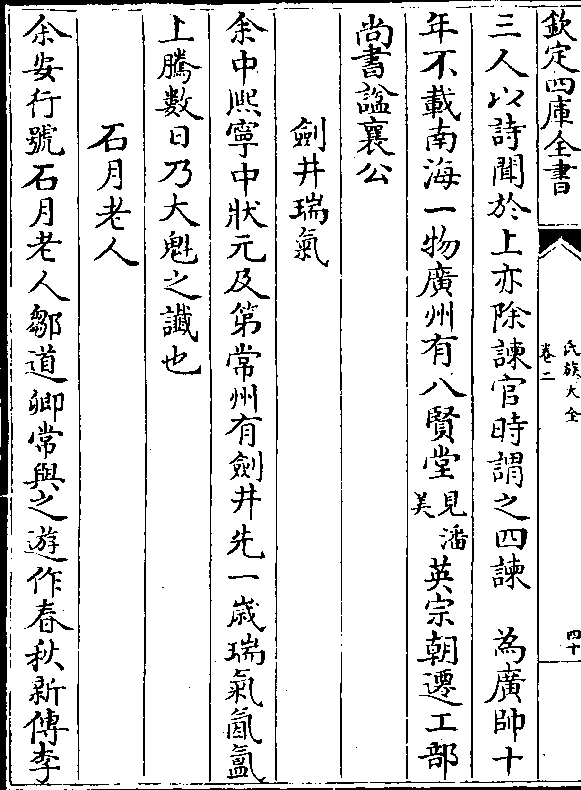 欽定四庫全書
氏族大全
卷二
四十
三人以詩聞於上亦除諫官時謂之四諫　為廣帥十
年不載南海一物廣州有八賢堂見潘美英宗朝遷工部
尚書謚襄公
劍井瑞氣
余中熈寧中狀元及第常州有劍井先一歲瑞氣氤氲
上騰數日乃大魁之讖也
石月老人
余安行號石月老人鄒道卿常與之遊作春秋新傳李